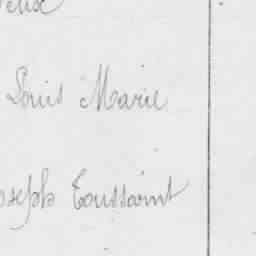 Louis Marie
Joseph Toussaint